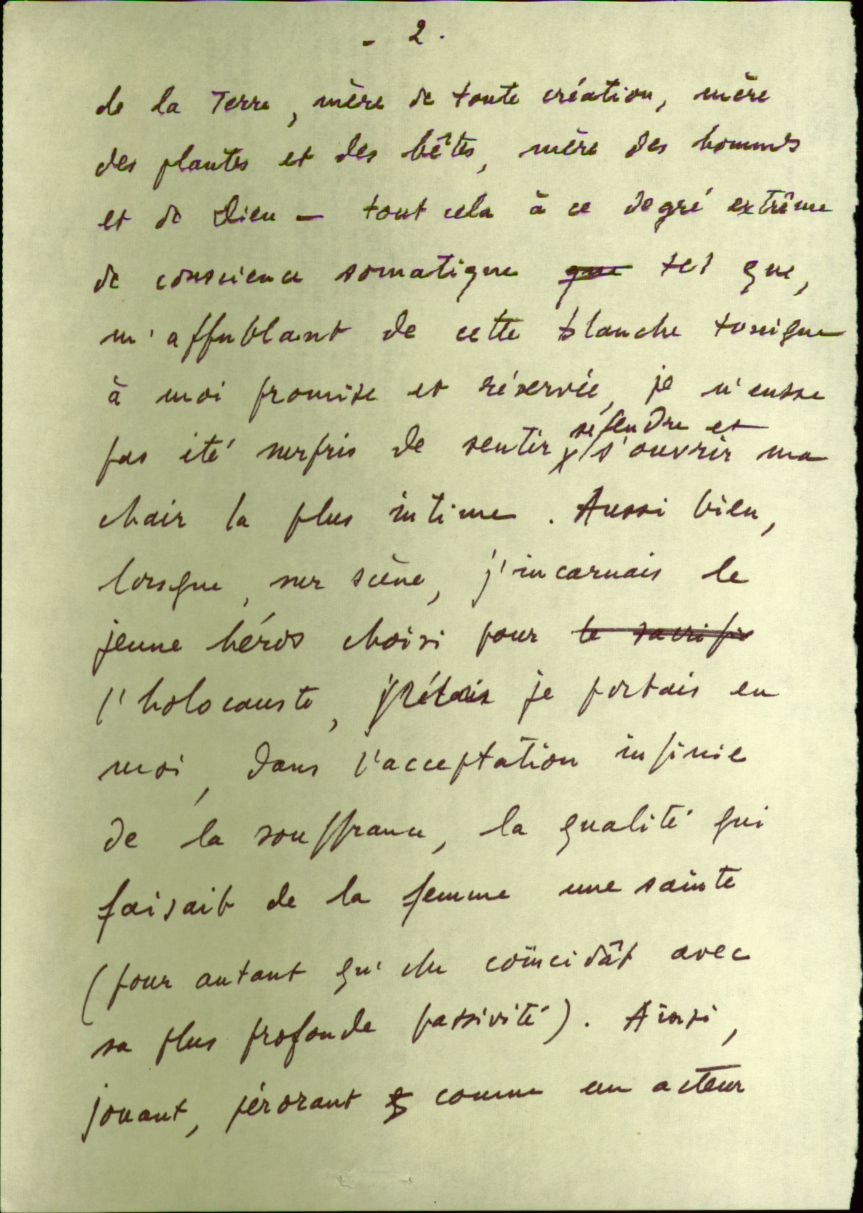 - 2 -
de la Terre, mère de toute création, mère
des plantes et des bêtes, mère des hommes
et de Dieu — tout cela à ce degré extrême
de conscience somatique que tel que,
m'affublant de cette blanche tunique
à moi promise et réservée, je n'eusse
se fendre et
pas été surpris de sentir s'ouvrir ma
chair la plus intime. Aussi bien,
lorsque, sur scène, j'incarnais le
jeune héros choisi pour le sacrifi
l'holocauste, j'étais je portais en
moi, dans l'acceptation infinie
de la souffrance, la qualité qui
faisait de la femme une sainte
(pour autant qu'elle coïncidât avec
sa plus profonde passivité). Ainsi,
jouant, pérorant comme un acteur